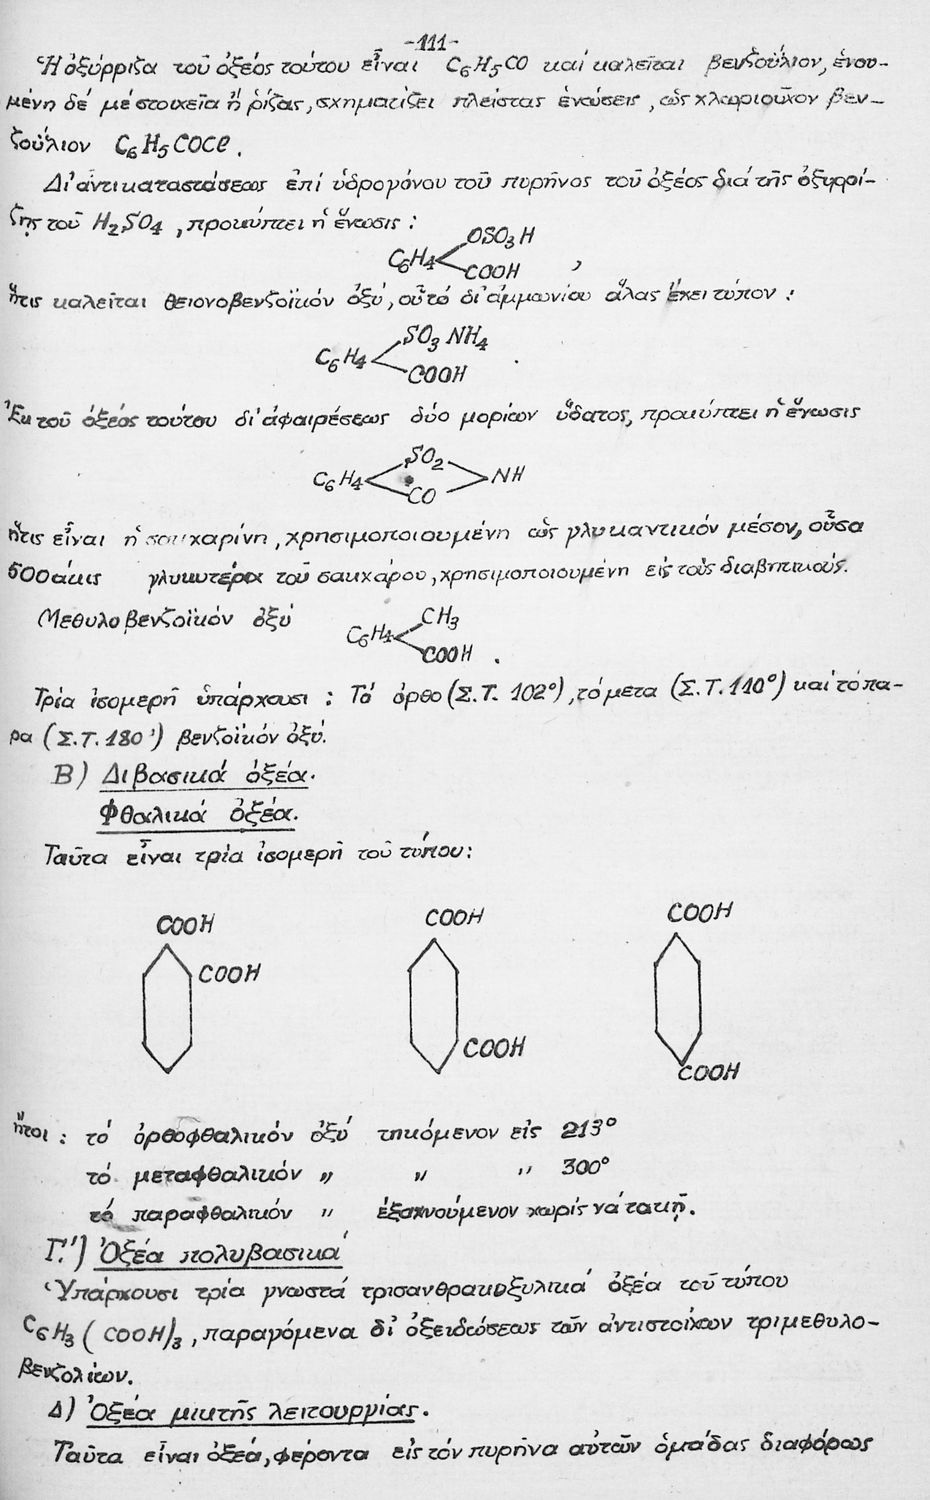 -111-
Ἡ ὀξύρριζα τοῦ ὀξέος τούτου εἶναι C6H5CO καί καλεῖται βενζοΰλιον, ἑνου-
μένη δέ μέ στοιχεῖα ἤ ρίζας, σχηματίζει πλείστας ἑνώσεις, ὡς χλωριοῦχον βεν-
ζοΰλιον C6H5COCl.
Δι' ἀντικαταστάσεως ἐπί ὑδρογόνου τοῦ πυρῆνος τοῦ ὀξέος διά τῆς ὀξυρρί-
ζης τοῦ H2SO4, προκύπτει ἡ ἕνωσις:
OSO3H
C6H4
COOH ,
ἥτις καλεῖται θειονοβενζοϊκόν ὀξύ, οὗ τό δι' ἀμμωνίου ἅλας ἔχει τύπον:
SO3NH4
C6H4
COOH
Ἐκ τοῦ ὀξέος τούτου δι' ἀφαιρέσεως δύο μορίων ὕδατος, προκύπτει ἡ ἕνωσις
SO2
C6H4 NH
CO
ἥτις εἶναι ἡ σακχαρίνη, χρησιμοποιουμένη ὡς γλυκαντικόν μέσον, οὖσα
500άκις γλυκυτέρα τοῦ σακχάρου, χρησιμοποιουμένη εἰς τούς διαβητικούς.
Μεθυλοβενζοϊκόν ὀξύ
CH3
C6H4
COOH .
Τρία ἰσομερῆ ὑπάρχουσι: Τό ὀρθο (Σ.Τ. 102°), τό μετα (Σ.Τ. 110°) καί τό πα-
ρα (Σ.Τ. 180°) βενζοϊκόν ὀξύ.
Β) Διβασικά ὀξέα.
Φθαλικά ὀξέα.
Ταῦτα εἶναι τρία ἰσομερῆ τοῦ τύπου:
COOH COOH COOH
COOH
COOH
COOH
ἤτοι: τό ὀρθοφθαλικόν ὀξύ τηκόμενον εἰς 213°
τό μεταφθαλικόν " " " 300°
τό παραφθαλικόν " ἐξαχνούμενον χωρίς νά τακῇ.
Γ') Ὀξέα πολυβασικά
Ὑπάρχουσι τρία γνωστά τρισανθρακοξυλικά ὀξέα τοῦ τύπου
C6H3(COOH)3, παραγόμενα δι' ὀξειδώσεως τῶν ἀντιστοίχων τριμεθυλο-
βενζολίων.
Δ) Ὀξέα μικτῆς λειτουργίας.
Ταῦτα εἶναι ὀξέα, φέροντα εἰς τόν πυρῆνα αὐτῶν ὁμάδας διαφόρως